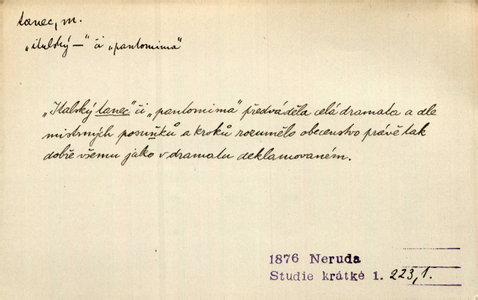 tanec, m.
„italský —“ či „pantomima“
„Italský tanec“ či „pantomima“ předváděla celá dramata a dle
mistrných posuňků a kroků rozumělo obecenstvo právě tak
dobře všemu jako v dramatu deklamovaném.
1876 Neruda
Studie krátké 1. 223,1.